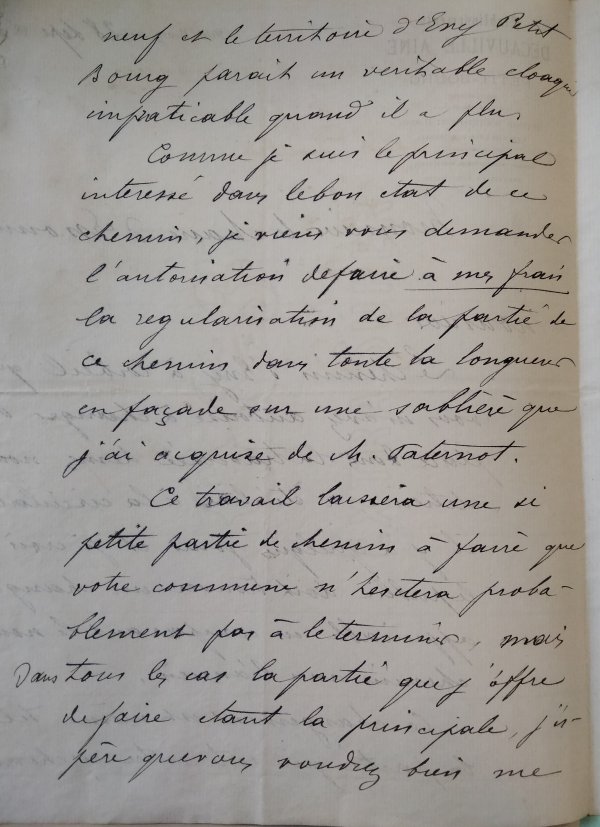 neuf et le territoire d'Evry Petit
Bourg parait un veritable cloaque
impraticable quand il a plu.
Comme je suis le principal
interessé dans le bon etat de ce
chemin, je viens vous demander
l'autorisation de faire à mes frais
la regularisation de la partie de
ce chemin dans toute la longueur
en façade sur une sablière que
j'ai acquise de M. Paternot.
Ce travail laissera une si
petite partie de chemin à faire que
votre commune n'hesitera proba-
blement pas à le terminer, mais
Dans tous les cas la partie que j'offre
de faire etant la principale, j'es-
père que vous voudrez bien me